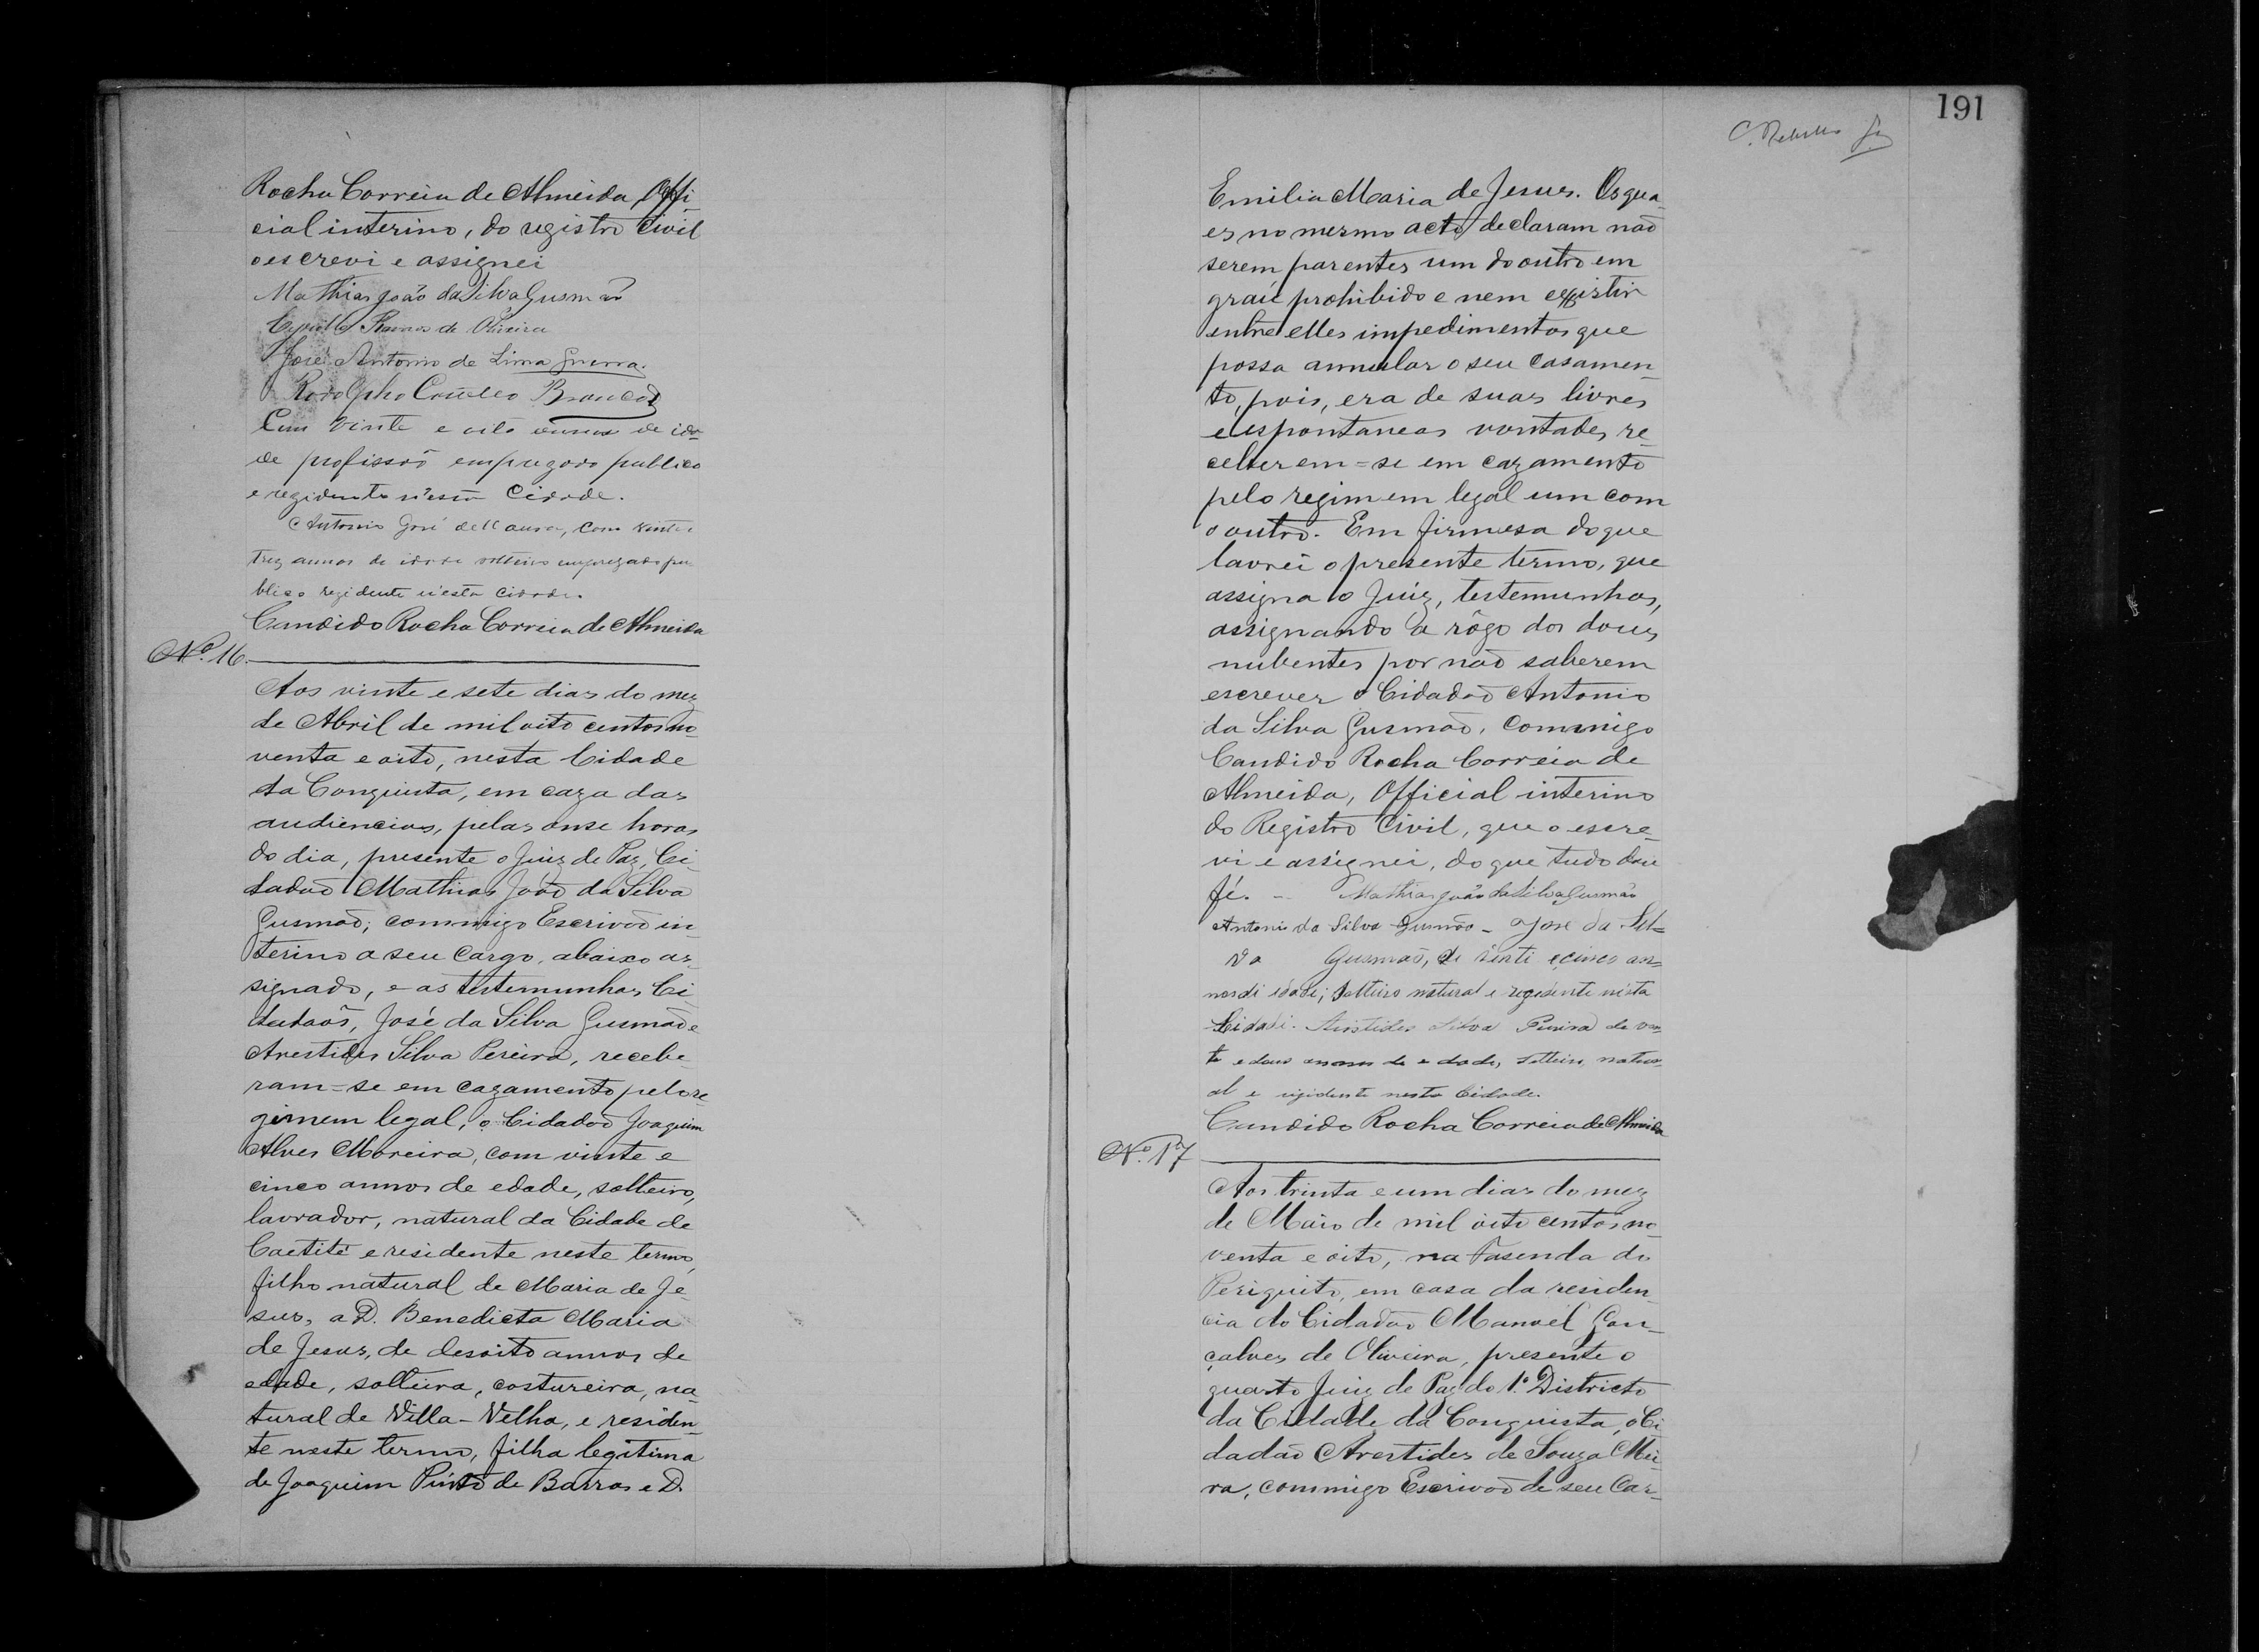 Rocha Correia de Almeida, Offi-
cial interino, do registro Civil
o escrevi e assignei
Mathias João da Silva Gusmão
Ramos de Oliveira
José Antonio de Lima Guerra.
Rodolpho Coêlho Branco
Com vinte e oito annos de ida-
de profissão empregado publico
e rezidente n'esta Cidade.
Antonio José de Moura, com vinte e
trez annos de idade solteiro empregado pu
blico rezidente n'esta Cidade.
Candido Rocha Correia de Almeida
Nº. 16.
Aos vinte e sete dias do mez
de Abril de mil oito centos no-
venta e oito, nesta Cidade
da Conquista, em caza das
audiencias, pelas onse horas
do dia, presente o Juiz de Paz, Ci-
dadão Mathias João da Silva
Gusmão; commigo Escrivão in-
terino a seu cargo, abaixo as-
signado, e as testemunhas Ci-
dadãos, José da Silva Gusmão e
Arestides Silva Pereira, recebe-
ram=se em cazamento pelo re-
gimem legal, o Cidadão Joaquim
Alves Moreira, com vinte e
cinco annos de edade, solteiro,
lavrador, natural da Cidade de
Caetité e residente neste termo,
filho natural de Maria de Je-
sus, a D. Benedicta Maria
de Jesus, de desoito annos de
edade, solteira, costureira, na-
tural de Villa-Velha, e residen-
te neste termo, filha legitima
de Joaquim Pinto de Barros e D.
191
Emilia Maria de Jesus. Os qua-
es no mesmo acto declaram não
serem parentes um do outro em
graú prohibido e nem existir
entre elles impedimentos que
possa annular o seu casamen-
to, pois, era de suas livres
e espontaneas vontades re-
ceberem=se em cazamento
pelo regimem legal um com
o outro. Em firmesa do que
lavrei o presente termo, que
assigna o Juiz, testemunhas,
assignando a rôgo dos dous
nubentes por não saberem
escrever o Cidadão Antonio
da Silva Gusmão, commigo
Candido Rocha Correia de
Almeida, Official interino
do Registro Civil, que o escre-
vi e assignei, do que tudo dou
fé. - Mathias João da Silva Gusmão
Antonio da Silva Gusmão - José da Sil=
va Gusmão, de vinti e cinco an=
nos di idadi; solteiro natural e rezidente nista
Cidadi. Aristides Silva Pereira de vin
te e dous annos de edade, solteiro, natur-
al e rezidente nesta Cidade.
Candido Rocha Correia de Almeida
Nº. 17
Aos trinta e um dias do mez
de Maio de mil oito centos no-
venta e oito, na Fasenda do
Periquito, em casa da residen-
cia do Cidadão Manoel Gon-
çalves de Oliveira, presente o
quarto Juiz de Paz do 1º. Districto
da Cidade da Conquista, o Ci-
dadão Arestides de Souza Mei-
ra, commigo Escrivão de seu Car-